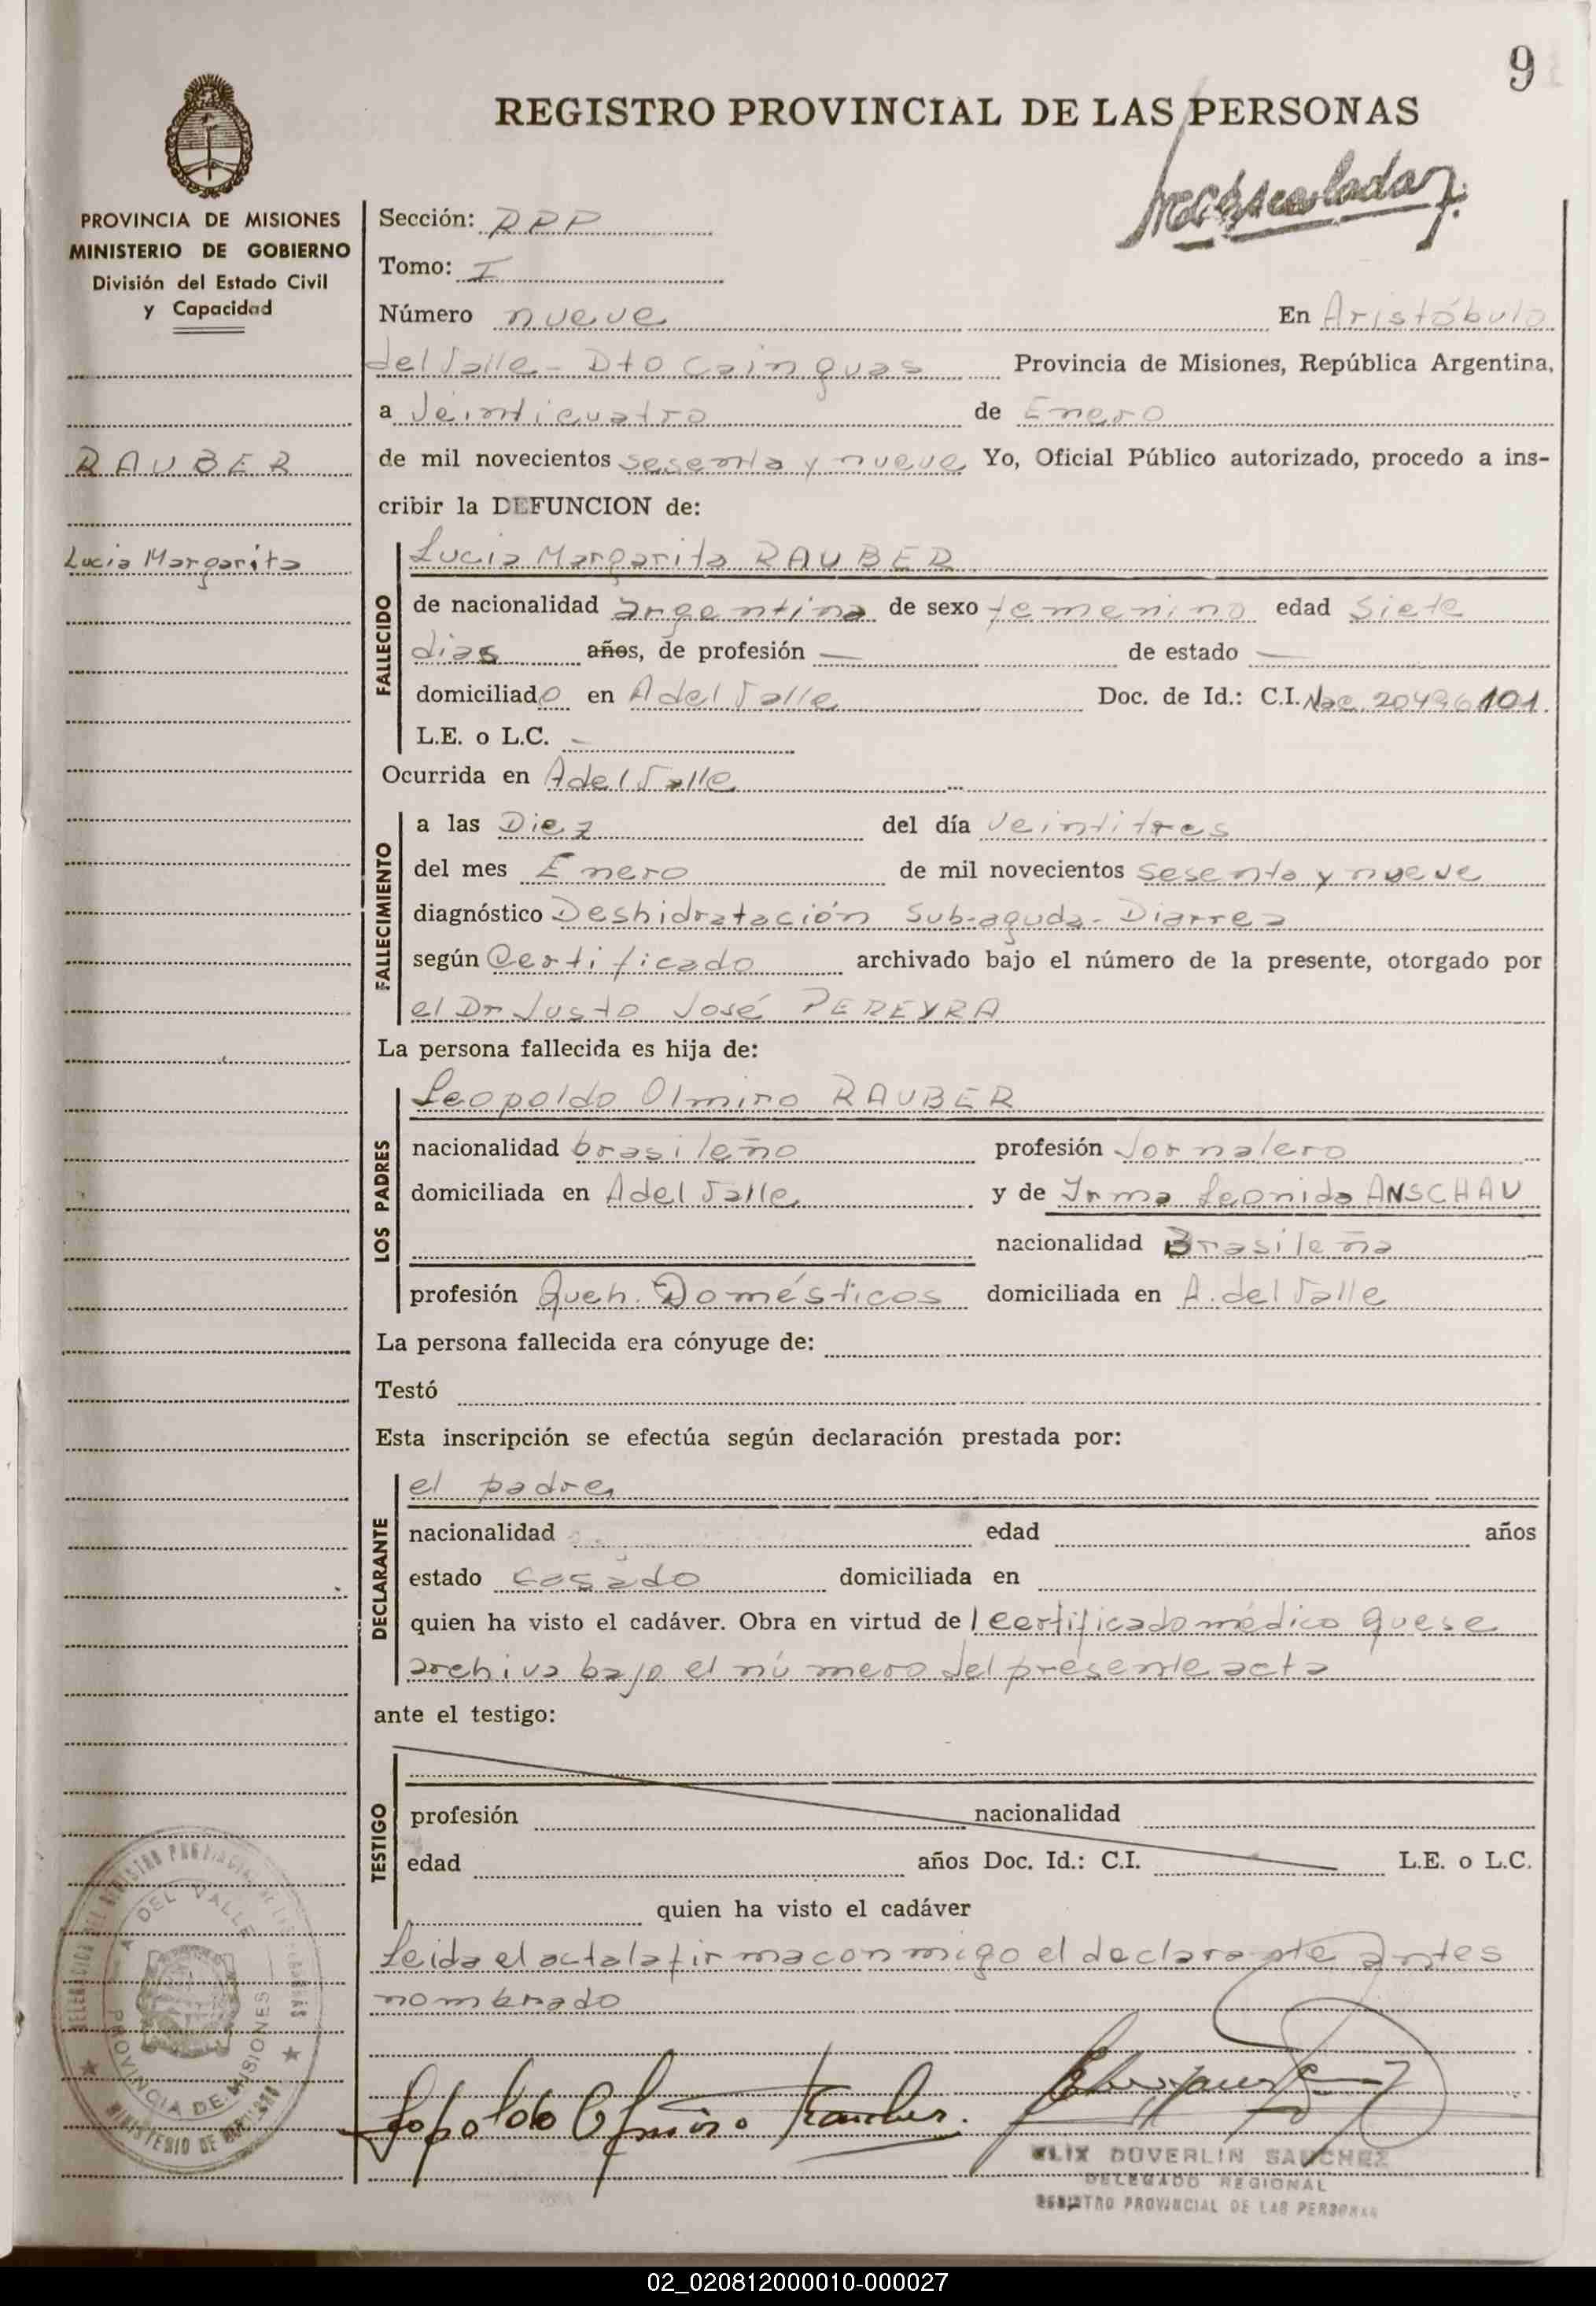 9
REGISTRO PROVINCIAL DE LAS PERSONAS
PROVINCIA DE MISIONES
MINISTERIO DE GOBIERNO
División del Estado Civil
y Capacidad
RAUBER
Lucia Margarita
Sección: RPP
Tomo: I
Número nueve En Aristóbulo
del Valle - Dto Cainguas Provincia de Misiones, República Argentina,
a Veinticuatro de Enero
de mil novecientos sesenta y nueve Yo, Oficial Público autorizado, procedo a ins-
cribir la DEFUNCION de:
FALLECIDO
Lucia Margarita RAUBER
de nacionalidad argentina de sexo femenino edad Siete
dias años, de profesión — de estado —
domiciliado en A del Valle Doc. de Id.: C.I. Nac. 20496101.
L.E. o L.C. -
Ocurrida en A del Valle
FALLECIMIENTO
a las Diez del día Veintitres
del mes Enero de mil novecientos sesenta y nueve
diagnóstico Deshidratación Sub-aguda - Diarrea
según Certificado archivado bajo el número de la presente, otorgado por
el Dr Justo José PEREYRA
La persona fallecida es hija de:
LOS PADRES
Leopoldo Olmiro RAUBER
nacionalidad brasileño profesión Jornalero
domiciliada en A del Valle y de Irma Leonida ANSCHAU
nacionalidad Brasileña
profesión Queh. Domésticos domiciliada en A. del Valle
La persona fallecida era cónyuge de:
Testó
Esta inscripción se efectúa según declaración prestada por:
DECLARANTE
el padre
nacionalidad edad años
estado casado domiciliada en
quien ha visto el cadáver. Obra en virtud de l certificado médico que se
archiva bajo el número del presente acta
ante el testigo:
TESTIGO
profesión nacionalidad
edad años Doc. Id.: C.I. L.E. o L.C.
quien ha visto el cadáver
Leida el acta la firma conmigo el declarante antes
nombrado
Leopoldo Olmiro Rauber.
DELEGACION DEL REGISTRO PROVINCIAL DE LAS PERSONAS
A DEL VALLE
PROVINCIA DE MISIONES
MINISTERIO DE GOBIERNO
ELIX DUVERLIN SANCHEZ
DELEGADO REGIONAL
REGISTRO PROVINCIAL DE LAS PERSONAS
02_020812000010-000027